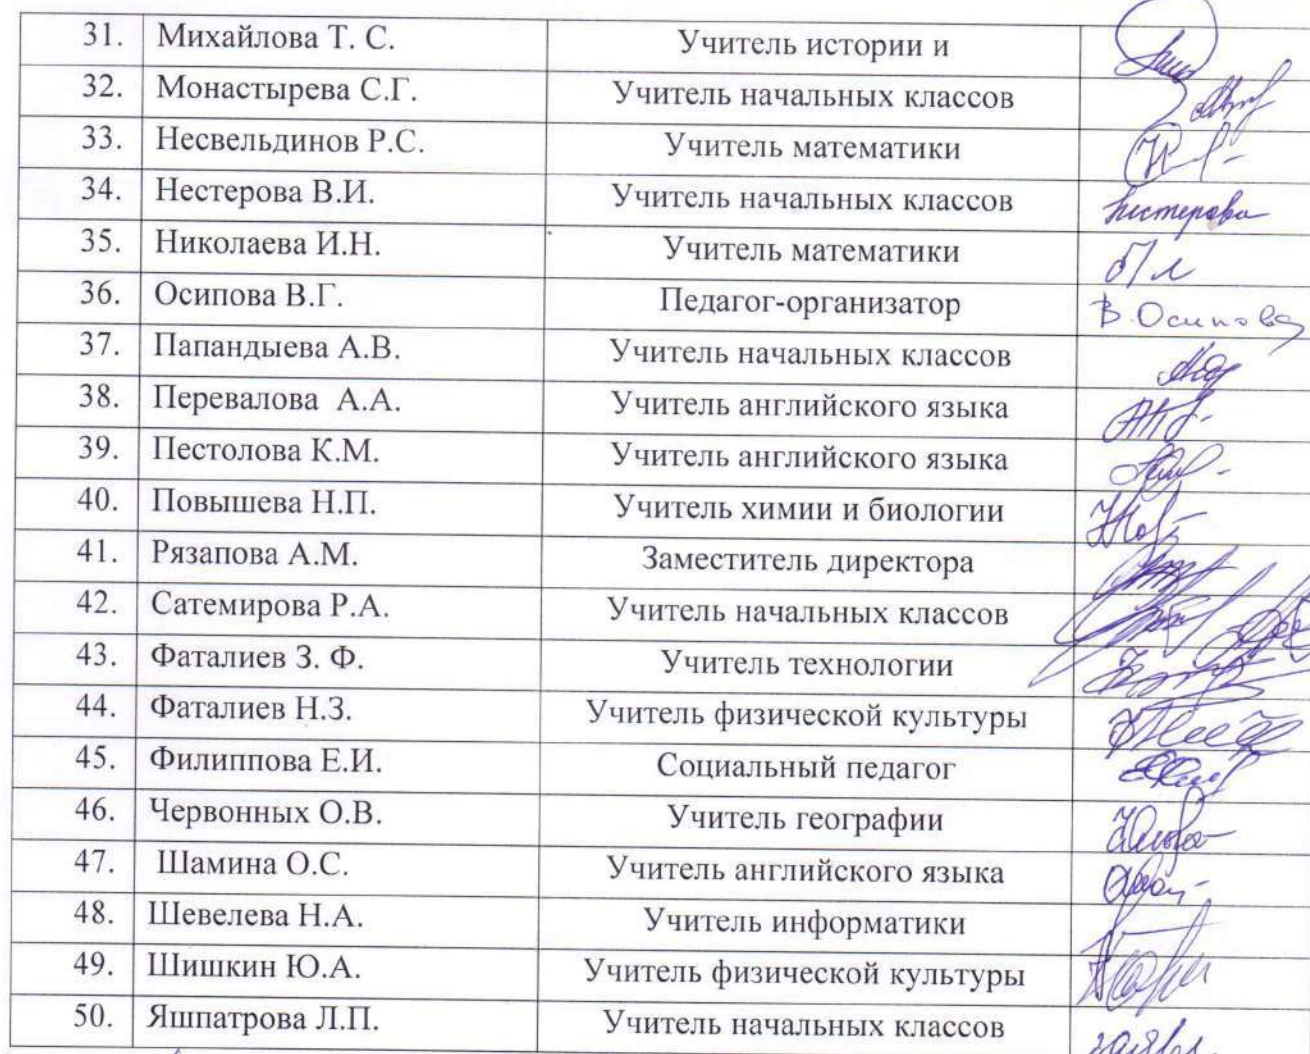 31. Михайлова Т. С. Учитель истории и
32. Монастырева С.Г. Учитель начальных классов
33. Несвельдинов Р.С. Учитель математики
34. Нестерова В.И. Учитель начальных классов Нестерова
35. Николаева И.Н. Учитель математики б/л
36. Осипова В.Г. Педагог-организатор В.Осипова
37. Папандыева А.В. Учитель начальных классов
38. Перевалова А.А. Учитель английского языка
39. Пестолова К.М. Учитель английского языка
40. Повышева Н.П. Учитель химии и биологии
41. Рязапова А.М. Заместитель директора
42. Сатемирова Р.А. Учитель начальных классов
43. Фаталиев З. Ф. Учитель технологии
44. Фаталиев Н.З. Учитель физической культуры
45. Филиппова Е.И. Социальный педагог
46. Червонных О.В. Учитель географии
47. Шамина О.С. Учитель английского языка
48. Шевелева Н.А. Учитель информатики
49. Шишкин Ю.А. Учитель физической культуры
50. Яшпатрова Л.П. Учитель начальных классов